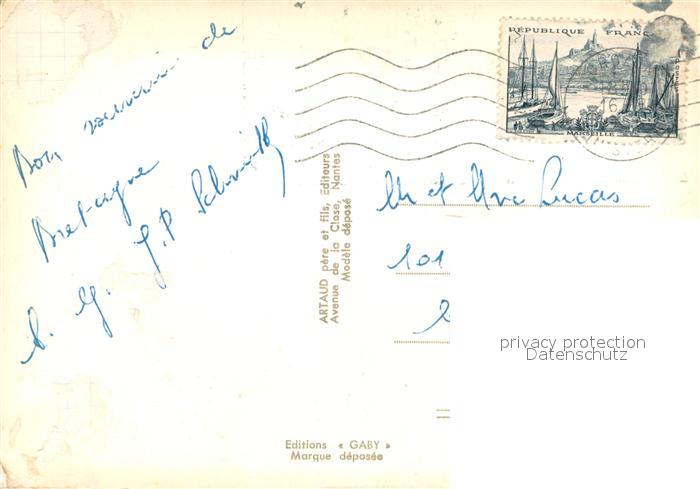 Bon souvenir de
Bretagne
G. J.P Schmidt
ARTAUD père et fils, Editeurs
Avenue de la Close, Nantes
Modèle déposé
Editions « GABY »
Marque déposée
RÉPUBLIQUE FRANÇ
MARSEILLE
16
Mr et Mme Lucas
101
2
privacy protection
Datenschutz